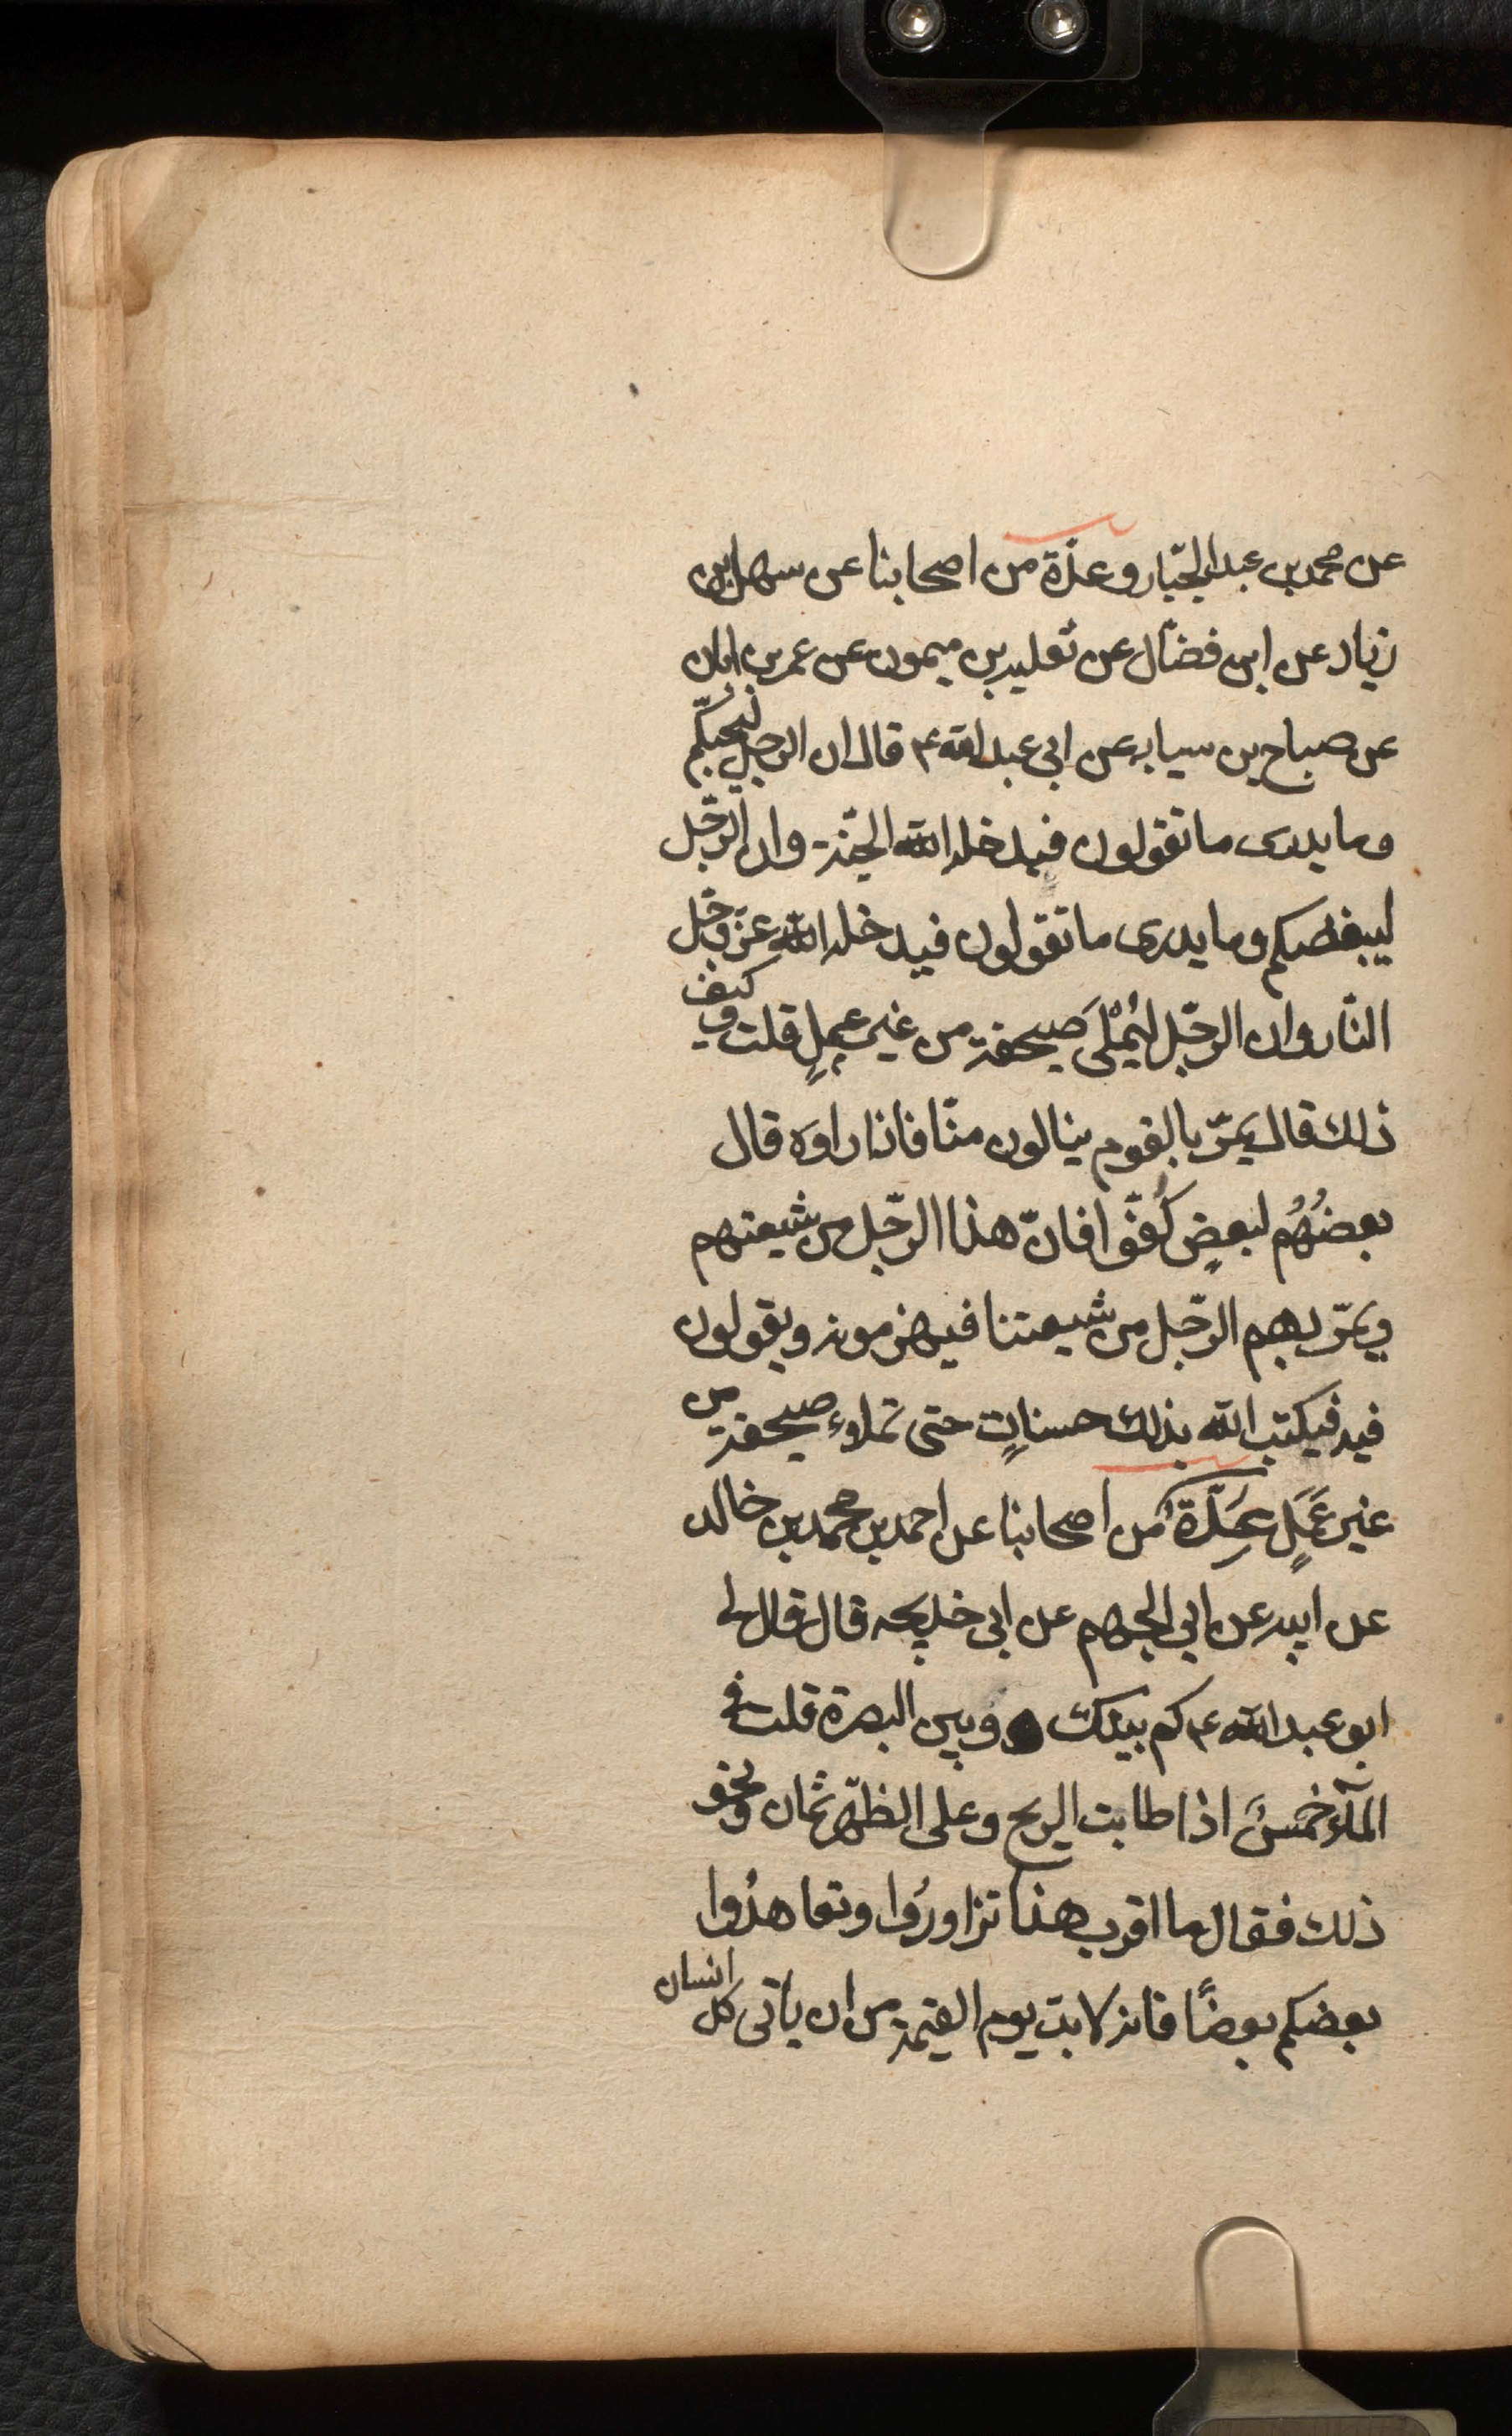 عن محمد بن عبد الجبّار وعدّة من اصحابنا عن سهل بن
زياد عن ابن فضّال عن ثعلبه بن ميمون عن عمر بن ابان
عن صباح بن سيابه عن ابي عبد الله ع قال ان الرجل ليُحبّكم
وما يدرى ما تقولون فيدخله الله الجنّة وان الرّجل
ليبغضكم وما يدرى ما تقولون فيدخله الله عزّ وجّل
النّار وان الرجّل ليُمْلَى صحيفته من غير عملٍ قلت وكيف
ذلك قال يمرّ بالقوم ينالون منّا فاذا راوَه قال
بعضُهُم لبعضٍ كُفّوا فانّ هذا الرجّل من شيعتهم
ويَمّر بهم الرجّل من شيعتنا فيهزمونه ويقولون
فيه فيكتب الله بذلك حسناتٍ حتى تملاء صحيفته من
غير عَمَلٍ عِدَّةٌ من اصحابنا عن احمد بن محمد بن خالد
عن ابيه عن ابي الجهم عن ابى خديجه قال قال لى
ابو عبد الله ع كم بينك وبين البصرة قلت فى
المآء خمسَ اذا طابت الريح وعلى الظّهر ثمان ونحو
ذلك فقال ما اقرب هذا تزاورُوا وتعاهدُوا
بعضكم بعضًا فانه لا بدّ يوم القيمة من ان ياتى كل انسان